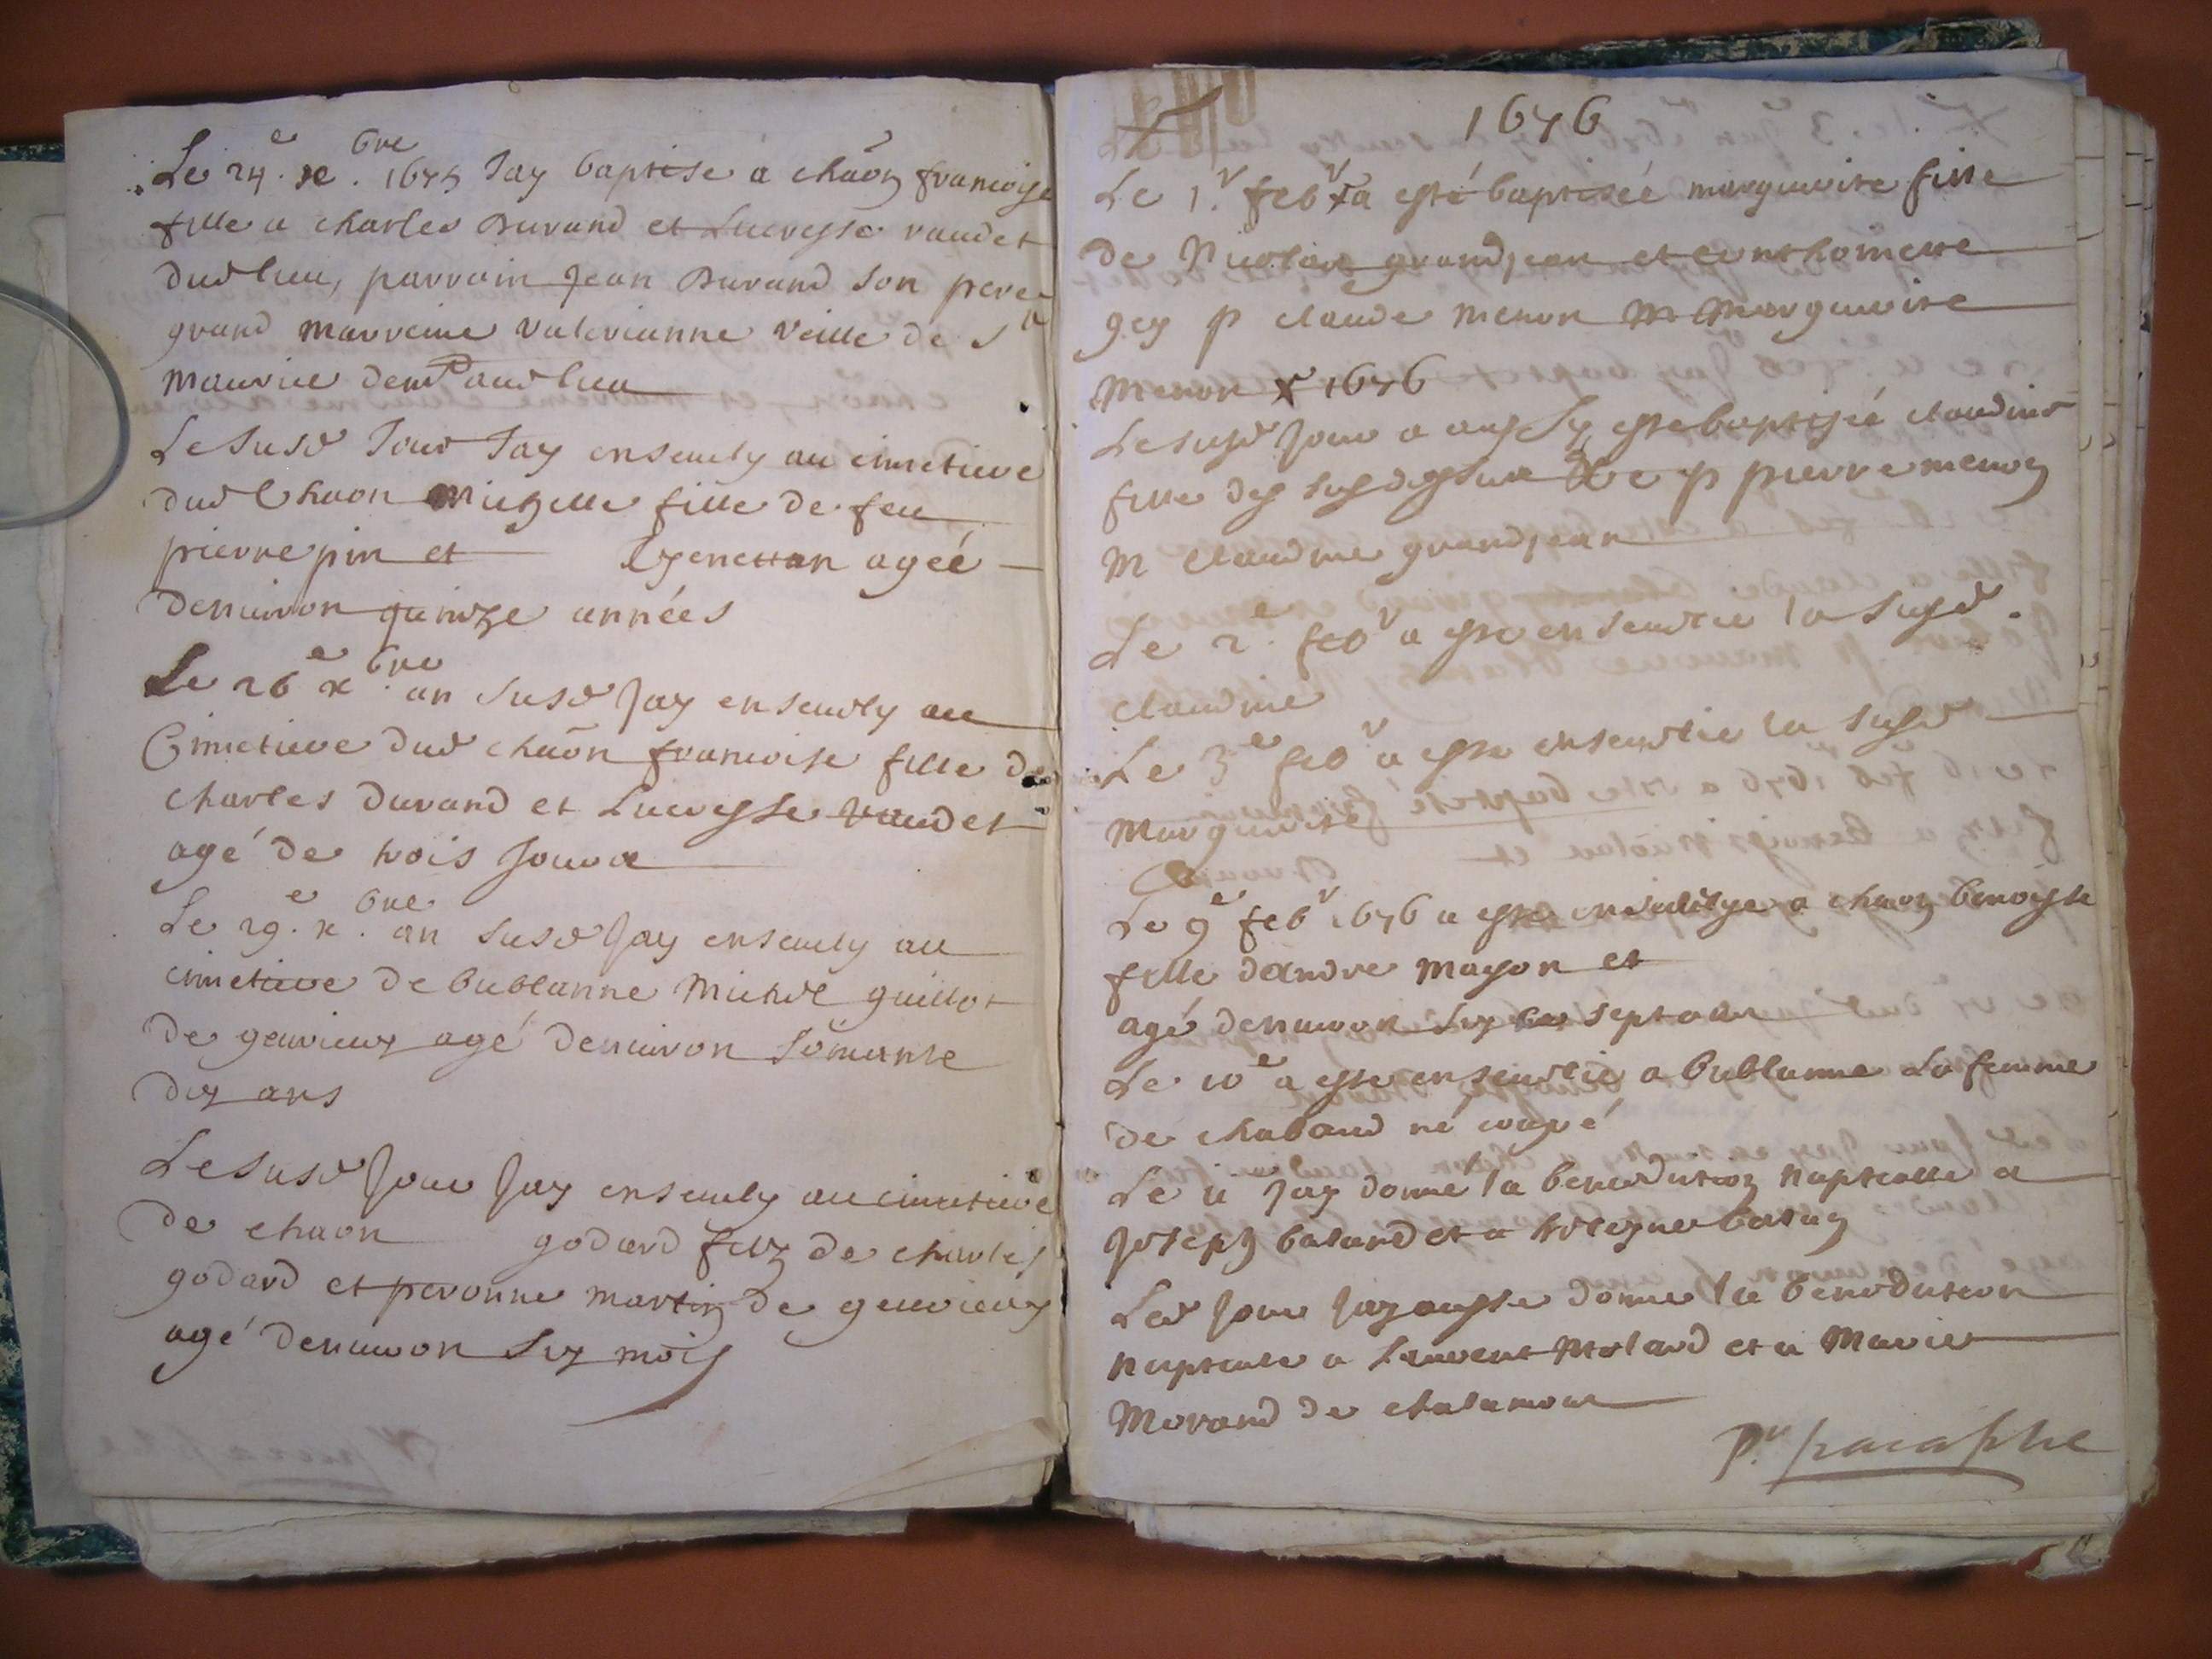 Le 24e xbre 1675 Jay baptise a chaōn francoise
fille a charles Durand et Lucresse vaudet
dud lieu, parrain Jean Durand son pere
grand marreine valerianne veille de St
maurice demt aud lieu
Le susd Jour Jay ensevely au cimetiere
dud Chaon Michelle fille de feu
pierre pin et agéé
denuiron quinze années
Le 26e xbre an susd Jay ensevely au
Cimetiere dud chaōn francoise fille de
charles durand et Lucresse vaudet
agé de trois Jours
Le 29e xbre an susd Jay ensevely au
cimetiere de bublanne Michel guillot
de genrieux agé denuiron soixante
dix ans
Le susd Jour Jay ensevely au cimetiere
de chaon godard filz de charles
godard et peronne martin de genrieux
agé denuiron six mois
1676
Le 1r febr a esté baptisée marguerite fille
de Nicolas grandjean et
p claude menon M Marguerite
Menon 1676
Le susd Jour a aussy este baptiséé claudine
fille des susd p pierre menon
M Claudine grandjean
Le 2e febr a este ensevelie la susd
claudine
Le 3e febr a este ensevelie la susd
Marguerite
Le 9e febr 1676 a este a chaon benoiste
fille dandre mayon et
agé denuiron six ou sept ans
Le 10e a este ensevelie a bublanne La femme
de chaband né
Le 11 Jay donné la benediction nuptialle a
Joseph baland et a
Led Jour Jay aussy donne la benediction
nuptiale a Laurent Molard et a Marie
Morand de chalamont
paraphe